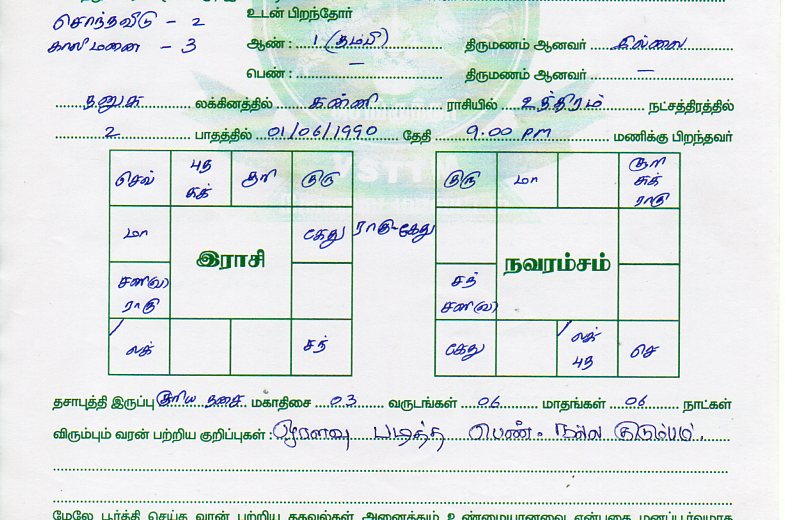 சொந்தவீடு - 2 உடன் பிறந்தோர்
காலிமனை - 3 ஆண் : 1 (தம்பி) திருமணம் ஆனவர் இல்லை
பெண் : — திருமணம் ஆனவர் —
தனுசு லக்கினத்தில் கன்னி ராசியில் உத்திரம் நட்சத்திரத்தில்
2 பாதத்தில் 01/06/1990 தேதி 9.00 pm மணிக்கு பிறந்தவர்
செவ் புத சுக் சூரி குரு
மா கேது
சனி(வ) ராகு
லக் சந்
இராசி
ராகு-கேது
குரு மா சூரி சுக் ராகு
சந் சனி(வ)
கேது லக் புத செ
நவரம்சம்
தசாபுத்தி இருப்பு சூரிய தசை மகாதிசை 03 வருடங்கள் 06 மாதங்கள் 06 நாட்கள்
விரும்பும் வரன் பற்றிய குறிப்புகள் : ஓரளவு படித்த பெண். நல்ல குடும்பம்.
மேலே பூர்த்தி செய்த வரன் பற்றிய தகவல்கள் அனைத்தும் உண்மையானவை என்பதை மனப்பூர்வமாக